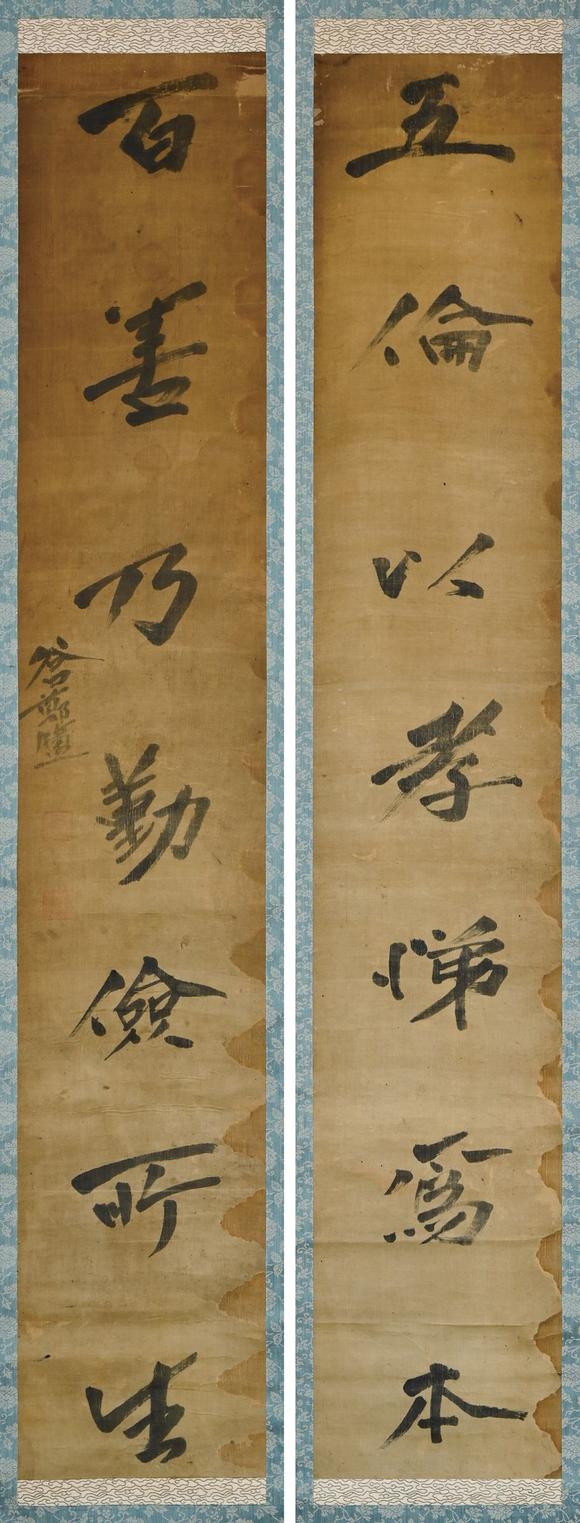 五倫以孝悌爲本
百善乃勤儉所生
谷口鄭簠